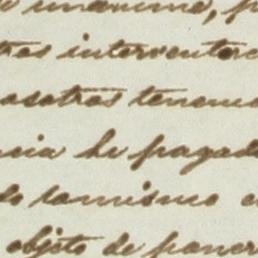 unanime, p
tros interventore
nosotros tenemo
cia he pagad
do lo mismo e
objeto de poner